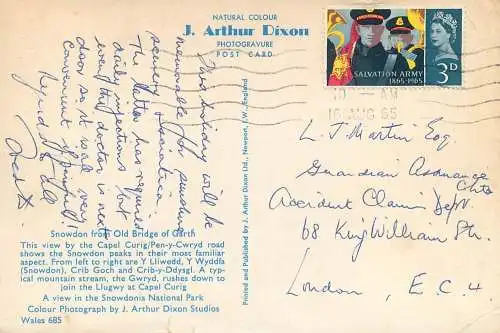 NATURAL COLOUR
J. Arthur Dixon
PHOTOGRAVURE
POST CARD
This holiday will be
memorable for sunshine
scenery & sciatica
The latter has required
daily injections but
even the doctor is next
door so it is all very
convenient if painful
Regards to all
Snowdon from Old Bridge of Garth
This view by the Capel Curig/Pen-y-Cwryd road
shows the Snowdon peaks in their most familiar
aspect. From left to right are Y Lliwedd, Y Wyddfa
(Snowdon), Crib Goch and Crib-y-Ddysgl. A typ-
ical mountain stream, the Gwryd, rushes down to
join the Llugwy at Capel Curig
A view in the Snowdonia National Park
Colour Photograph by J. Arthur Dixon Studios
Wales 685
Printed and Published by J. Arthur Dixon Ltd., Newport, I.W., England
SALVATION ARMY
1865-1965
3D
AM
16 AUG 65
L. J. Martin Esq.
Guardian Assurance
Accident Claims Dept.
68 King William Str.
London, E.C.4